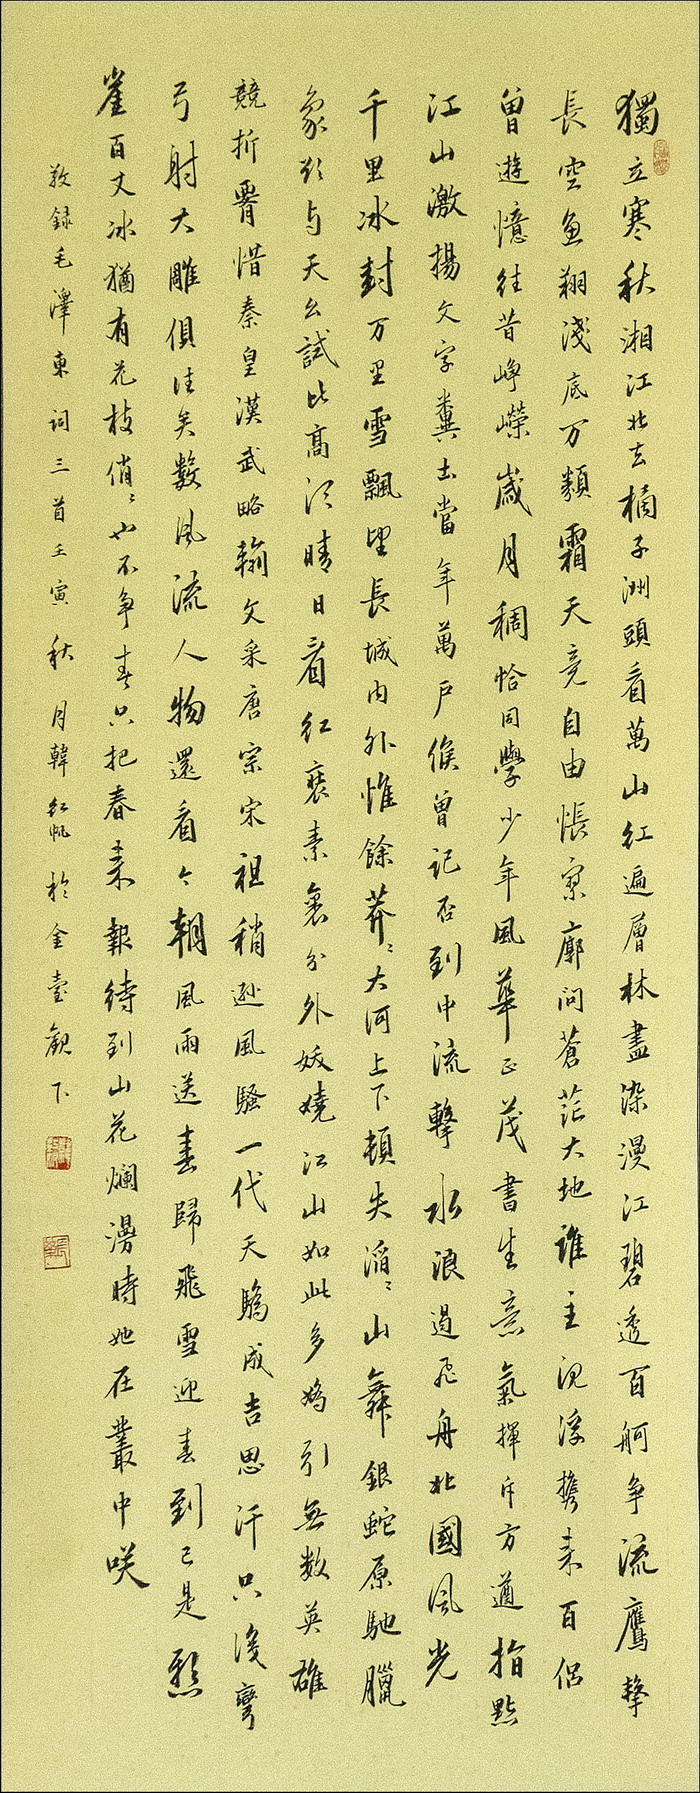 獨立寒秋湘江北去橘子洲頭看萬山紅遍層林盡染漫江碧透百舸争流鷹擊
長空魚翔淺底万類霜天竞自由悵寥廓问蒼茫大地誰主沉浮携来百侣
曾遊憶往昔崢嶸歲月稠恰同學少年風華正茂書生意氣揮斥方遒指點
江山激揚文字糞土當年萬户侯曾记否到中流擊水浪遏飛舟北國風光
千里冰封万里雪飄望長城内外惟餘莽〻大河上下頓失滔〻山舞銀蛇原馳臘
象欲与天公試比高须晴日看红裝素裹分外妖嬈江山如此多嬌引無数英雄
競折腰惜秦皇漢武略翰文采唐宗宋祖稍遜風騷一代天驕成吉思汗只识彎
弓射大雕俱往矣數風流人物還看今朝風雨送春歸飛雪迎春到已是懸
崖百丈冰猶有花枝俏〻也不争春只把春来報待到山花爛漫時她在叢中咲
敬録毛澤東词三首壬寅秋月韓红帆於金臺觀下